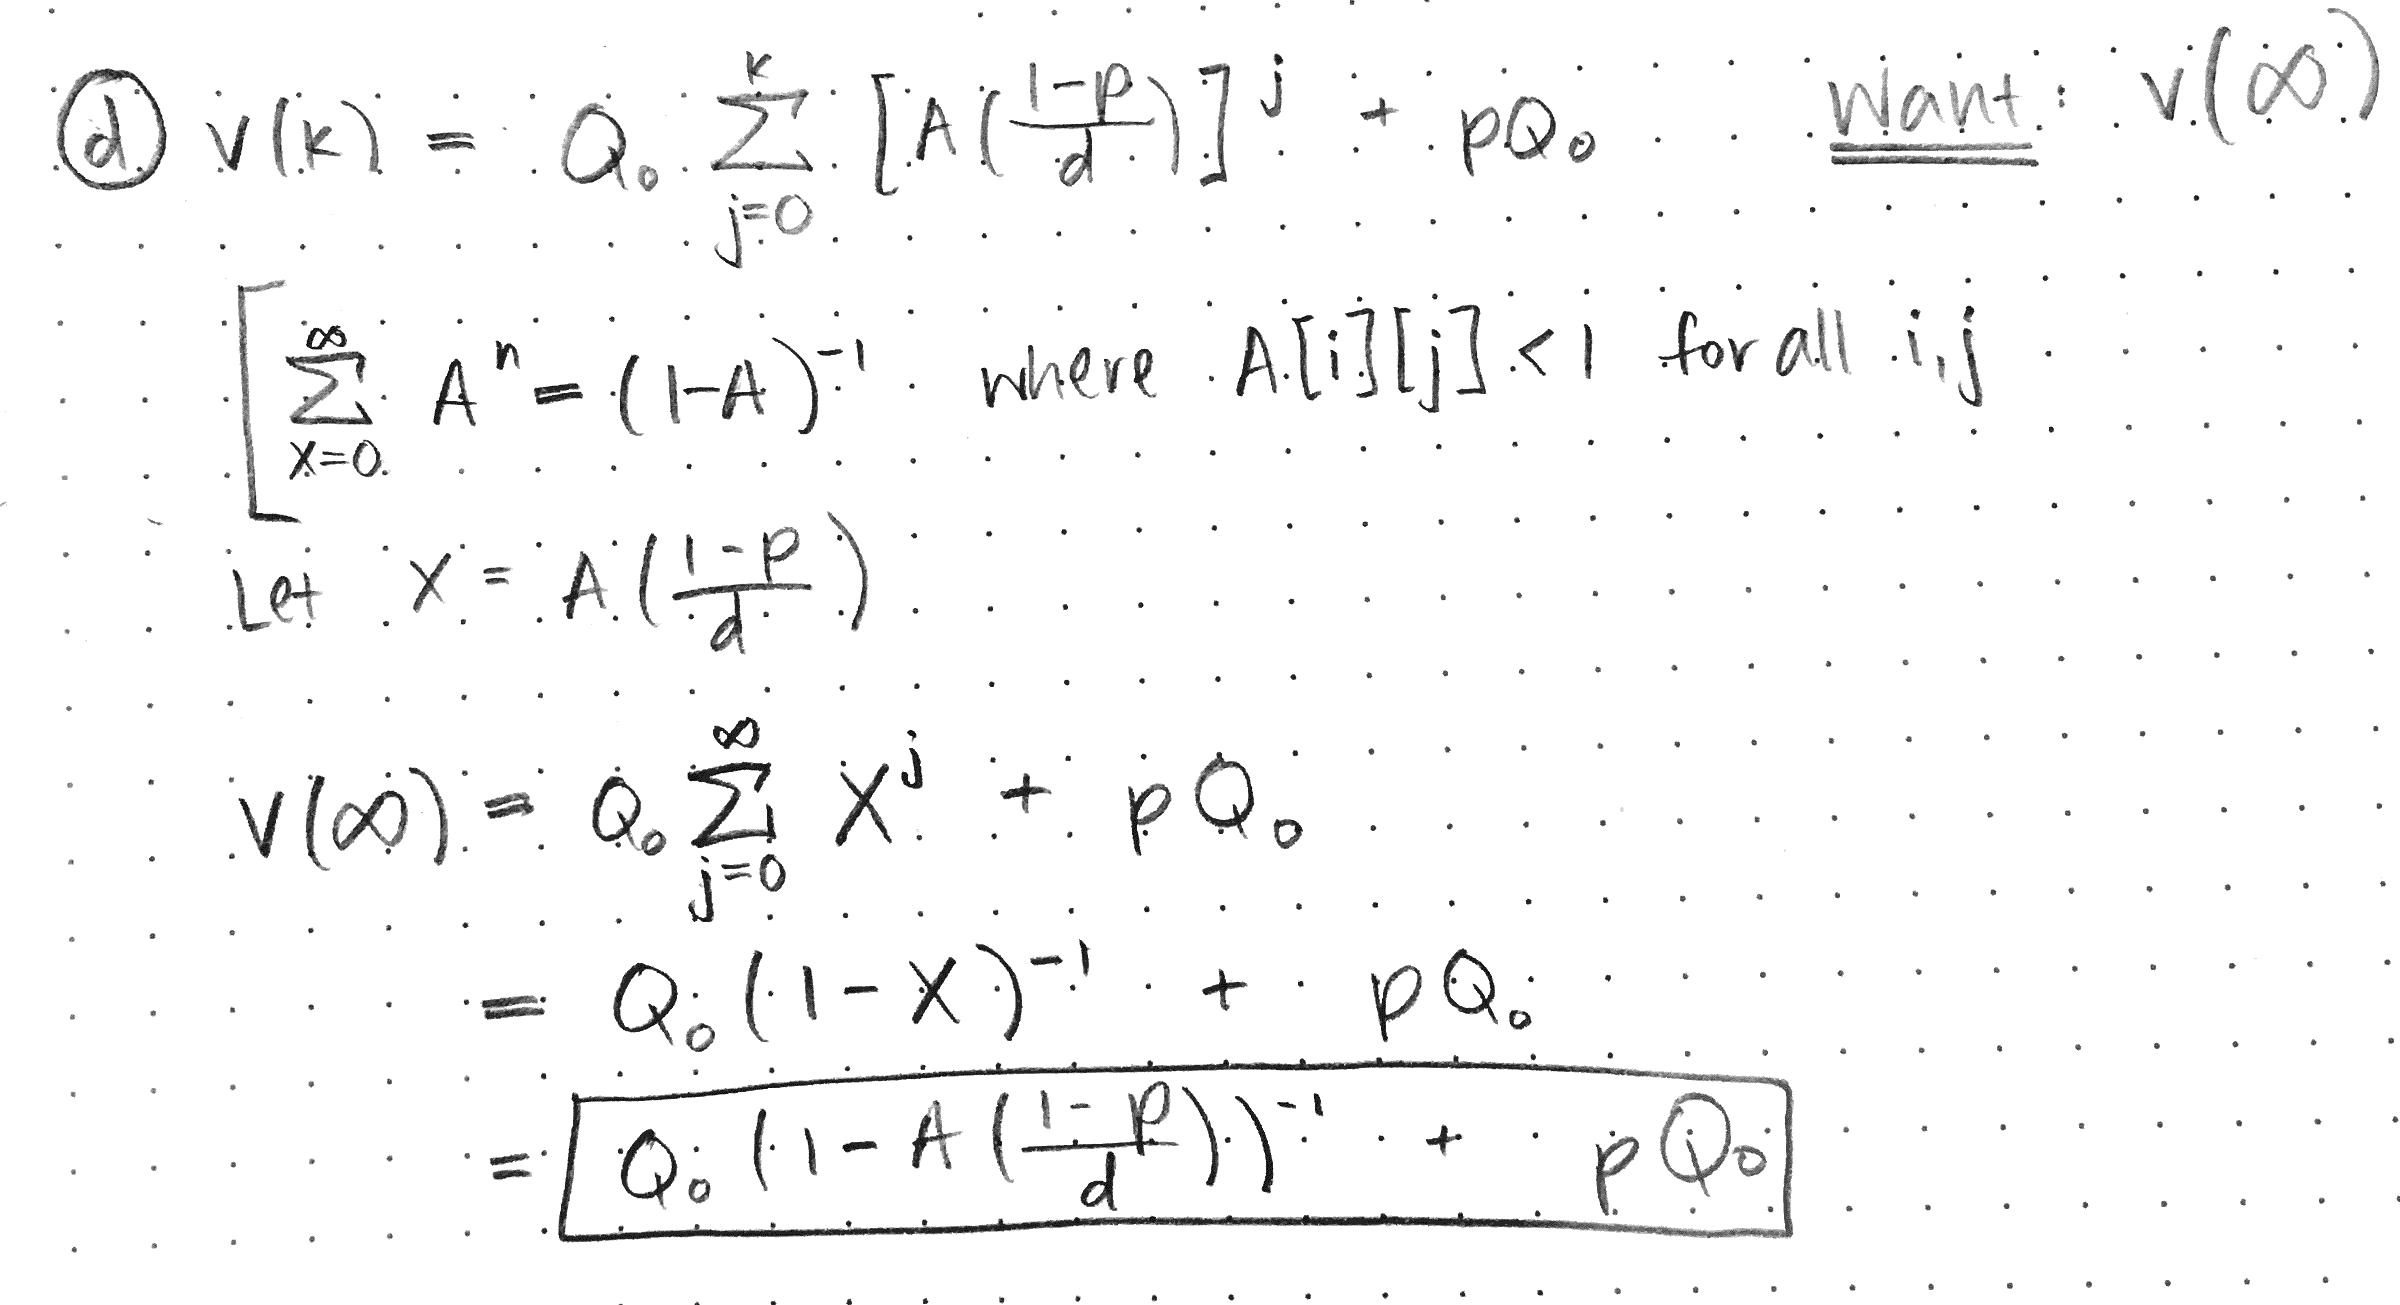 ⓓ v(k) = Q₀ ∑_{j=0}^{k} [A((1-p)/d)]^j + pQ₀ Want: v(∞)
∑_{x=0}^{∞} A^n = (1-A)^{-1} where A[i][j] < 1 for all i,j
Let X = A((1-p)/d)
v(∞) = Q₀ ∑_{j=0}^{∞} X^j + pQ₀
= Q₀ (1-X)^{-1} + pQ₀
= Q₀ (1-A((1-p)/d))^{-1} + pQ₀